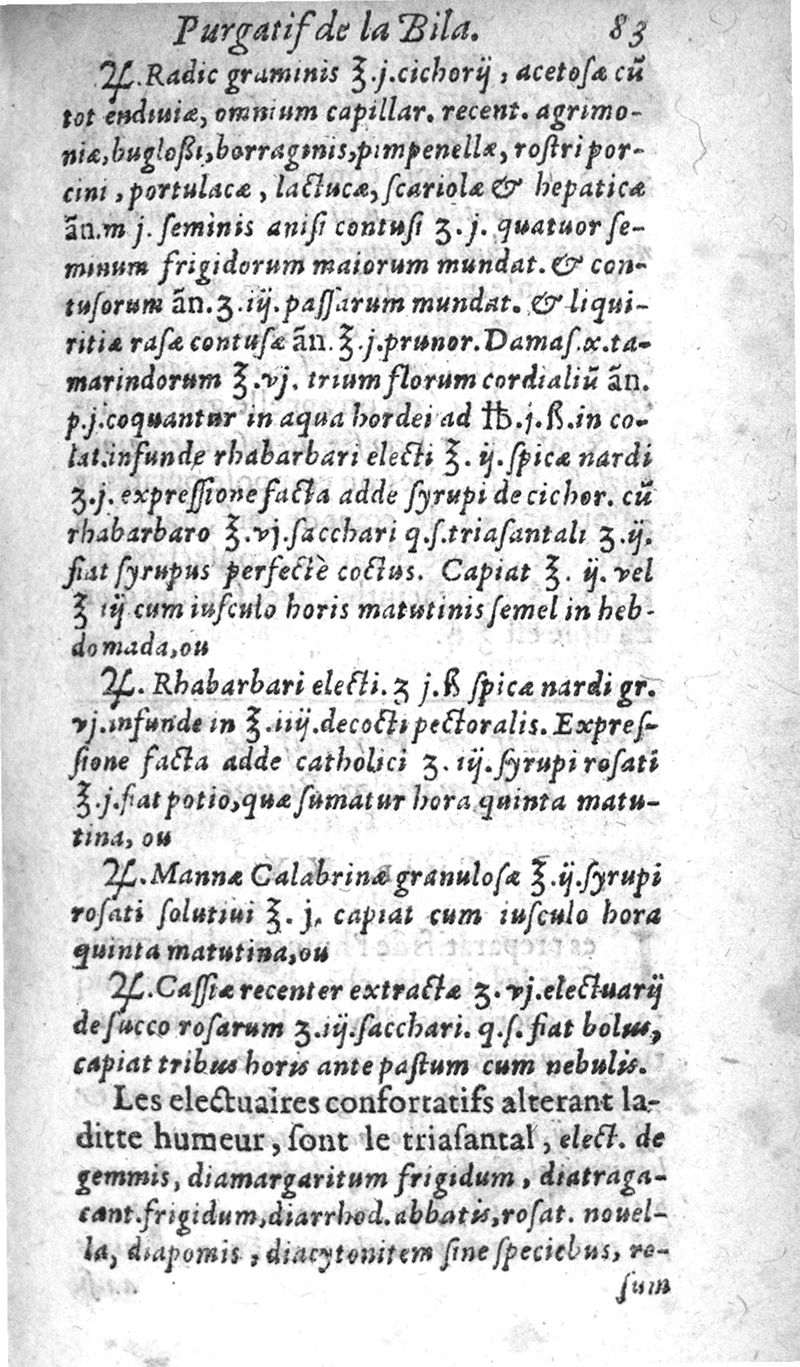 Purgatif de la Bila. 83
♃. Radic graminis ℥.j. cichorij, acetoſæ cū
tot endiuiæ, omnium capillar. recent. agrimo-
niæ, bugloßi, borraginis, pimpenellæ, roſtri por-
cini, portulacæ, lactucæ, ſcariolæ & hepaticæ
ãn. m j. ſeminis aniſi contuſi ʒ.j. quatuor ſe-
minum frigidorum maiorum mundat. & con-
tuſorum ãn. ʒ.iij. paſſarum mundat. & liqui-
ritiæ raſæ contuſæ ãn. ℥.j. prunor. Damaſ.x. ta-
marindorum ℥.vj. trium florum cordialiū ãn.
p.j. coquantur in aqua hordei ad ℔.j.ß. in co-
lat. infunde rhabarbari electi ℥.ij. ſpicæ nardi
ʒ.j. expreſſione facta adde ſyrupi de cichor. cū
rhabarbaro ℥.vj. ſacchari q.ſ. triaſantali ʒ.ij.
fiat ſyrupus perfectè coctus. Capiat ℥.ij. vel
℥ iij cum iuſculo horis matutinis ſemel in heb-
domada, ou
♃. Rhabarbari electi. ʒ j.ß ſpicæ nardi gr.
vj. infunde in ℥.iiij. decocti pectoralis. Expreſ-
ſione facta adde catholici ʒ.iij. ſyrupi roſati
℥.j. fiat potio, quæ ſumatur hora quinta matu-
tina, ou
♃. Mannæ Calabrinæ granuloſæ ℥.ij. ſyrupi
roſati ſolutiui ℥.j. capiat cum iuſculo hora
quinta matutina, ou
♃. Caſſiæ recenter extractæ ʒ.vj. electuarij
de ſucco roſarum ʒ.iij. ſacchari. q.ſ. fiat bolus,
capiat tribus horis ante paſtum cum nebulis.
Les electuaires confortatifs alterant la-
ditte humeur, ſont le triaſantal, elect. de
gemmis, diamargaritum frigidum, diatraga-
cant. frigidum, diarrhod. abbatis, roſat. nouel-
la, diapomis, diacytonitem ſine ſpeciebus, ro-
ſum